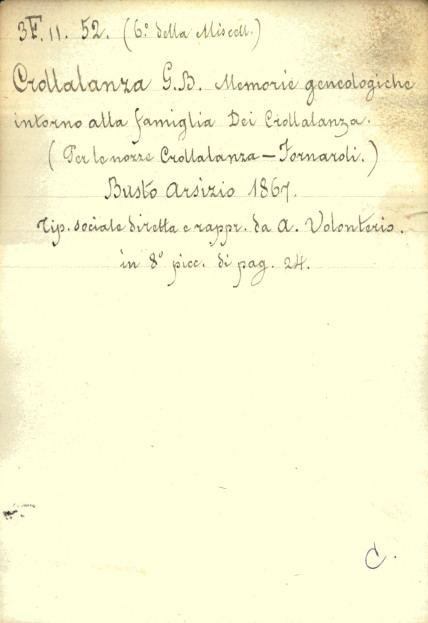 3F. 11. 52. (6º della Miscell.)
Crollalanza G.B. Memorie geneologiche
intorno alla famiglia Dei Crollalanza.
(Per le nozze Crollalanza – Fornaroli.)
Busto Arsizio 1867.
Tip. sociale diretta e rappr. da A. Volonterio.
in 8º picc. di pag. 24.
C.